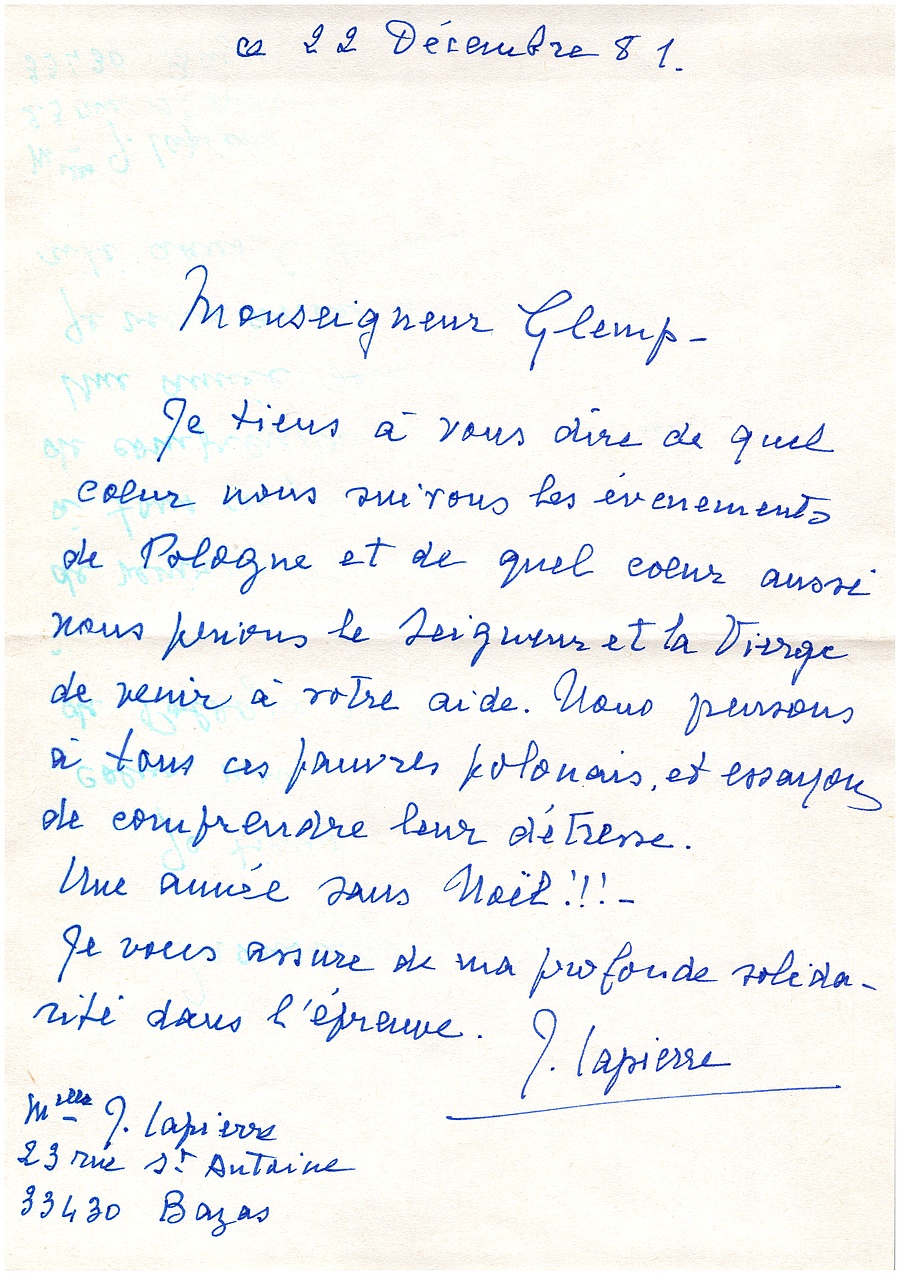 ce 22 Décembre 81.
Monseigneur Glemp -
Je tiens à vous dire de quel
coeur nous suivons les évènements
de Pologne et de quel coeur aussi
nous prions le Seigneur et la Vierge
de venir à votre aide. Nous pensons
à tous ces pauvres polonais, et essayons
de comprendre leur détresse.
Une année sans Noël !!! -
Je vous assure de ma profonde solida-
rité dans l'épreuve. J. Lapierre
Melle J. Lapierre
23 rue St Antoine
33430 Bazas